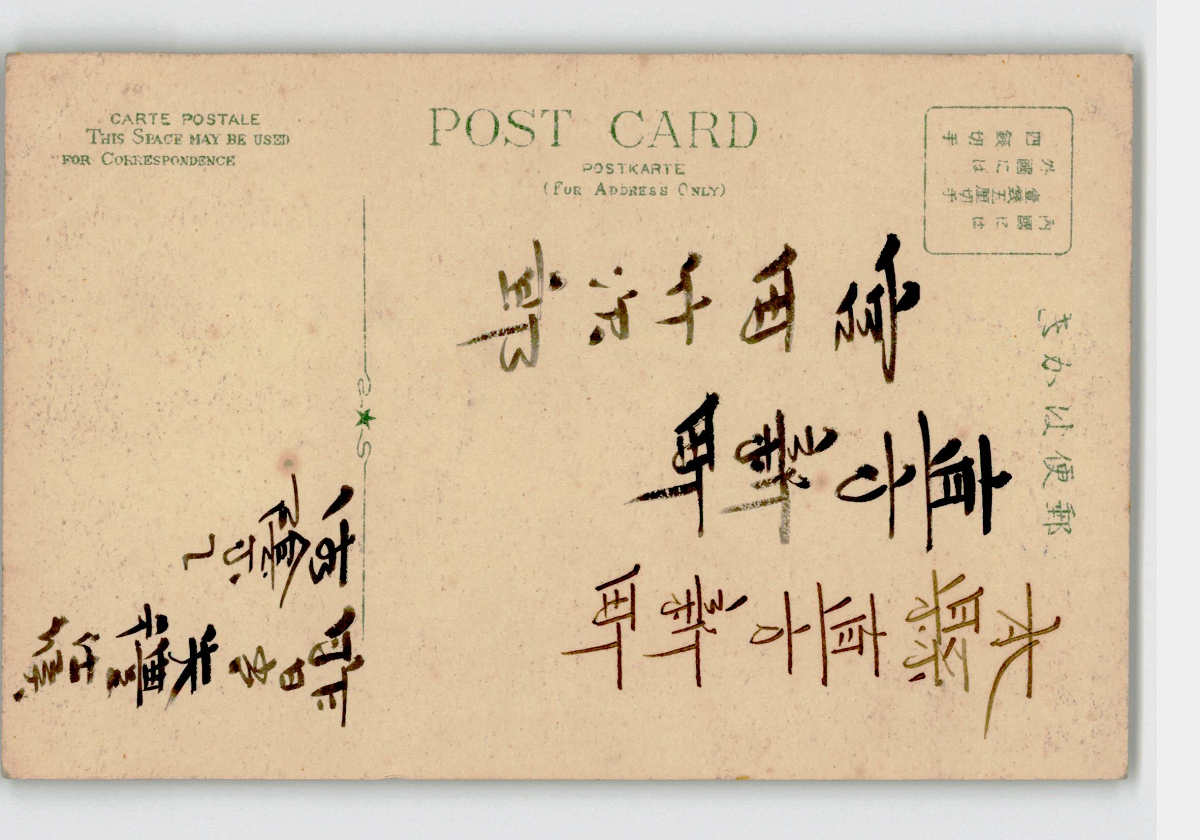 CARTE POSTALE
THIS SPACE MAY BE USED
FOR CORRESPONDENCE
POST CARD
POSTKARTE
(FOR ADDRESS ONLY)
郵便はかき
内國には
壹錢五厘切手
外國には
四錢切手
本縣直方新町
直方新町
昨日
失禮仕候